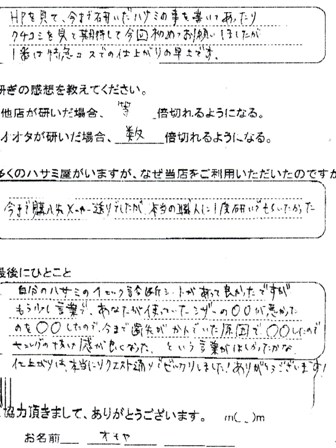 HPを見て、今まで研いだハサミの事を書いてあったり
クチコミを見て期待して今回初めてお願いしましたが
1番は特急コースでの仕上がりの早さです。
研ぎの感想を教えてください。
他店が研いだ場合、 等 倍切れるようになる。
イオタが研いだ場合、 数 倍切れるようになる。
多くのハサミ屋がいますが、なぜ当店をご利用いただいたのですか
今まで購入先メーカー送りでしたが、本当の職人に1度研いでもらいたかった
最後にひとこと
自分のハサミの 診断シートがあって良かったですが
もう少し言葉で、あなたが使っていたシザーの〇〇が悪かった
のを〇〇したので、今まで歯先がかんでいた原因で、〇〇したので
セニングの抜け感が良くなった、という言葉がほしかったかな
仕上がりは、本当にリクエスト通りでビックリしました!ありがとうございます!
協力頂きまして、ありがとうございます。 m(_)m
お名前